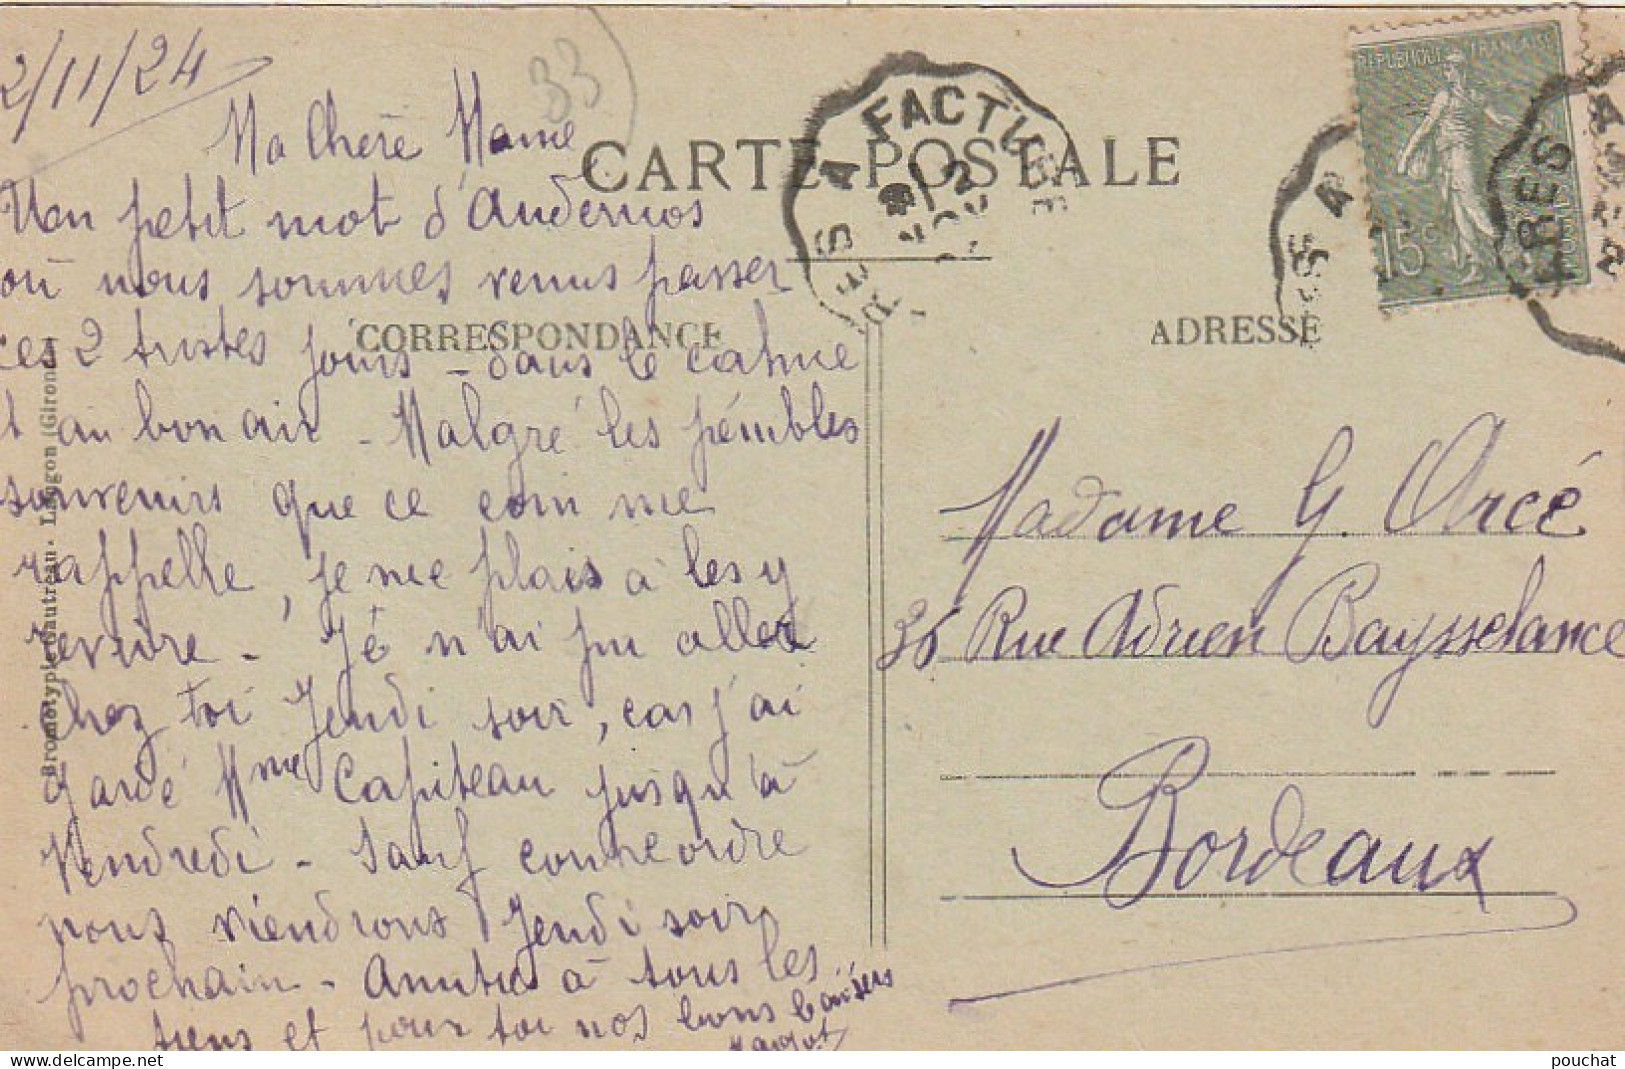 2/11/24
33
Ma Chère Mame
Un petit mot d'Andernos
où nous sommes venus passer
ces 2 tristes jours - dans le calme
et au bon air - Malgré les pénibles
souvenirs que ce coin me
rappelle, je me plais à les y
revivre - Je n'ai pu aller
chez toi Jeudi soir, car j'ai
gardé Mme Capiteau jusqu'à
Vendredi - Sauf contreordre
nous viendrons Jeudi soir
prochain - Amitiés à tous les
tiens et pour toi nos bons baisers
Margot
CARTE POSTALE
CORRESPONDANCE
ADRESSE
Bromotypie Gautreau - Langon (Gironde)
FACTURE
REPUBLIQUE FRANÇAISE
15c
Madame G. Orcé
36 Rue Adrien Baysselance
Bordeaux
pouchat
www.delcampe.net